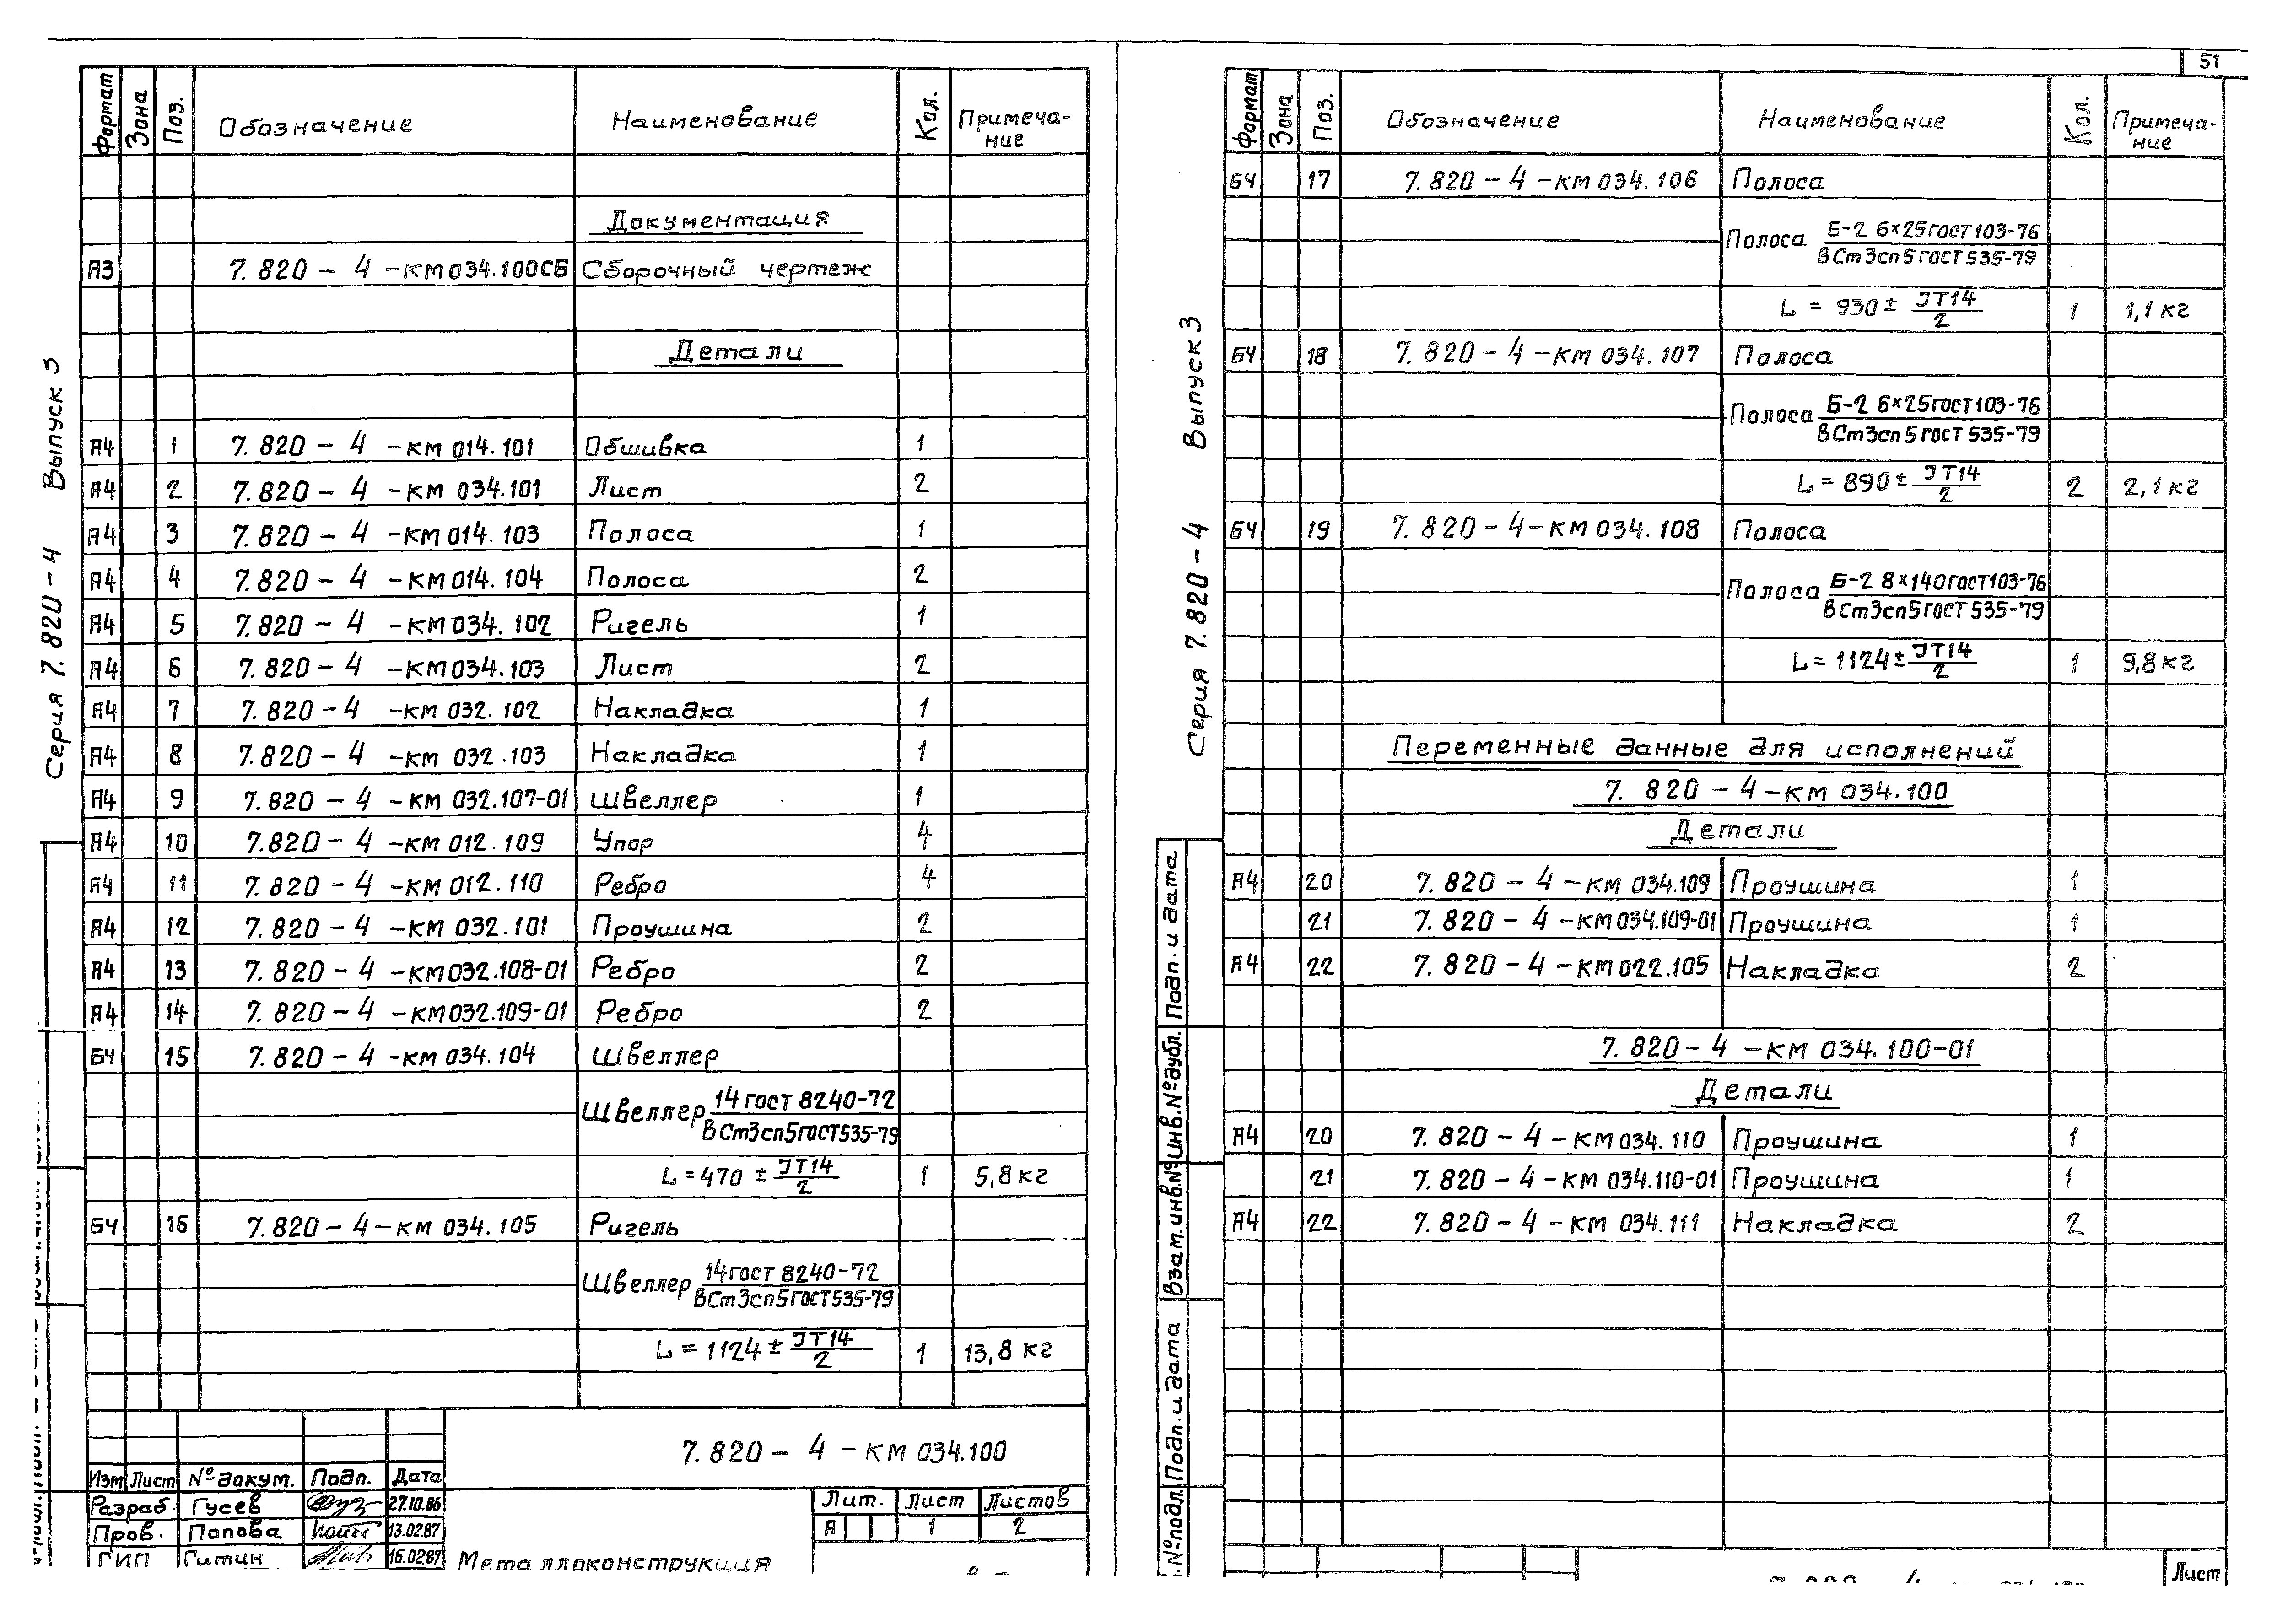 51
Серия 7.820-4 Выпуск 3
Формат Зона Поз. Обозначение Наименование Кол. Примеча-
ние
Документация
А3 7.820-4-КМ034.100СБ Сборочный чертеж
Детали
А4 1 7.820-4-КМ 014.101 Обшивка 1
А4 2 7.820-4-КМ 034.101 Лист 2
А4 3 7.820-4-КМ 014.103 Полоса 1
А4 4 7.820-4-КМ 014.104 Полоса 2
А4 5 7.820-4-КМ 034.102 Ригель 1
А4 6 7.820-4-КМ 034.103 Лист 2
А4 7 7.820-4-КМ 032.102 Накладка 1
А4 8 7.820-4-КМ 032.103 Накладка 1
А4 9 7.820-4-КМ 032.107-01 Швеллер 1
А4 10 7.820-4-КМ 012.109 Упор 4
А4 11 7.820-4-КМ 012.110 Ребро 4
А4 12 7.820-4-КМ 032.101 Проушина 2
А4 13 7.820-4-КМ 032.108-01 Ребро 2
А4 14 7.820-4-КМ 032.109-01 Ребро 2
БЧ 15 7.820-4-КМ 034.104 Швеллер
Швеллер 14 ГОСТ 8240-72
ВСт3сп5 ГОСТ 535-79
L=470 ± JT14/2 1 5,8 кг
БЧ 16 7.820-4-КМ 034.105 Ригель
Швеллер 14 ГОСТ 8240-72
ВСт3сп5 ГОСТ 535-79
L=1124 ± JT14/2 1 13,8 кг
7.820-4-КМ 034.100
Изм Лист № докум. Подп. Дата
Разраб. Гусев 27.10.86
Пров. Попова 13.02.87
ГИП Гитин 16.02.87
Металлоконструкция
Лит. Лист Листов
А 1 2
Серия 7.820-4 Выпуск 3
Формат Зона Поз. Обозначение Наименование Кол. Примеча-
ние
БЧ 17 7.820-4-КМ 034.106 Полоса
Полоса Б-2 6×25 ГОСТ 103-76
ВСт3сп5 ГОСТ 535-79
L = 930 ± JT14/2 1 1,1 кг
БЧ 18 7.820-4-КМ 034.107 Полоса
Полоса Б-2 6×25 ГОСТ 103-76
ВСт3сп5 ГОСТ 535-79
L = 890 ± JT14/2 2 2,1 кг
БЧ 19 7.820-4-КМ 034.108 Полоса
Полоса Б-2 8×140 ГОСТ 103-76
ВСт3сп5 ГОСТ 535-79
L = 1124 ± JT14/2 1 9,8 кг
Переменные данные для исполнений
7.820-4-КМ 034.100
Детали
А4 20 7.820-4-КМ 034.109 Проушина 1
21 7.820-4-КМ 034.109-01 Проушина 1
А4 22 7.820-4-КМ 022.105 Накладка 2
7.820-4-КМ 034.100-01
Детали
А4 20 7.820-4-КМ 034.110 Проушина 1
21 7.820-4-КМ 034.110-01 Проушина 1
А4 22 7.820-4-КМ 034.111 Накладка 2
Подп. и дата
Инв. № дубл.
Взам. инв. №
Подп. и дата
№ подл.
Лист